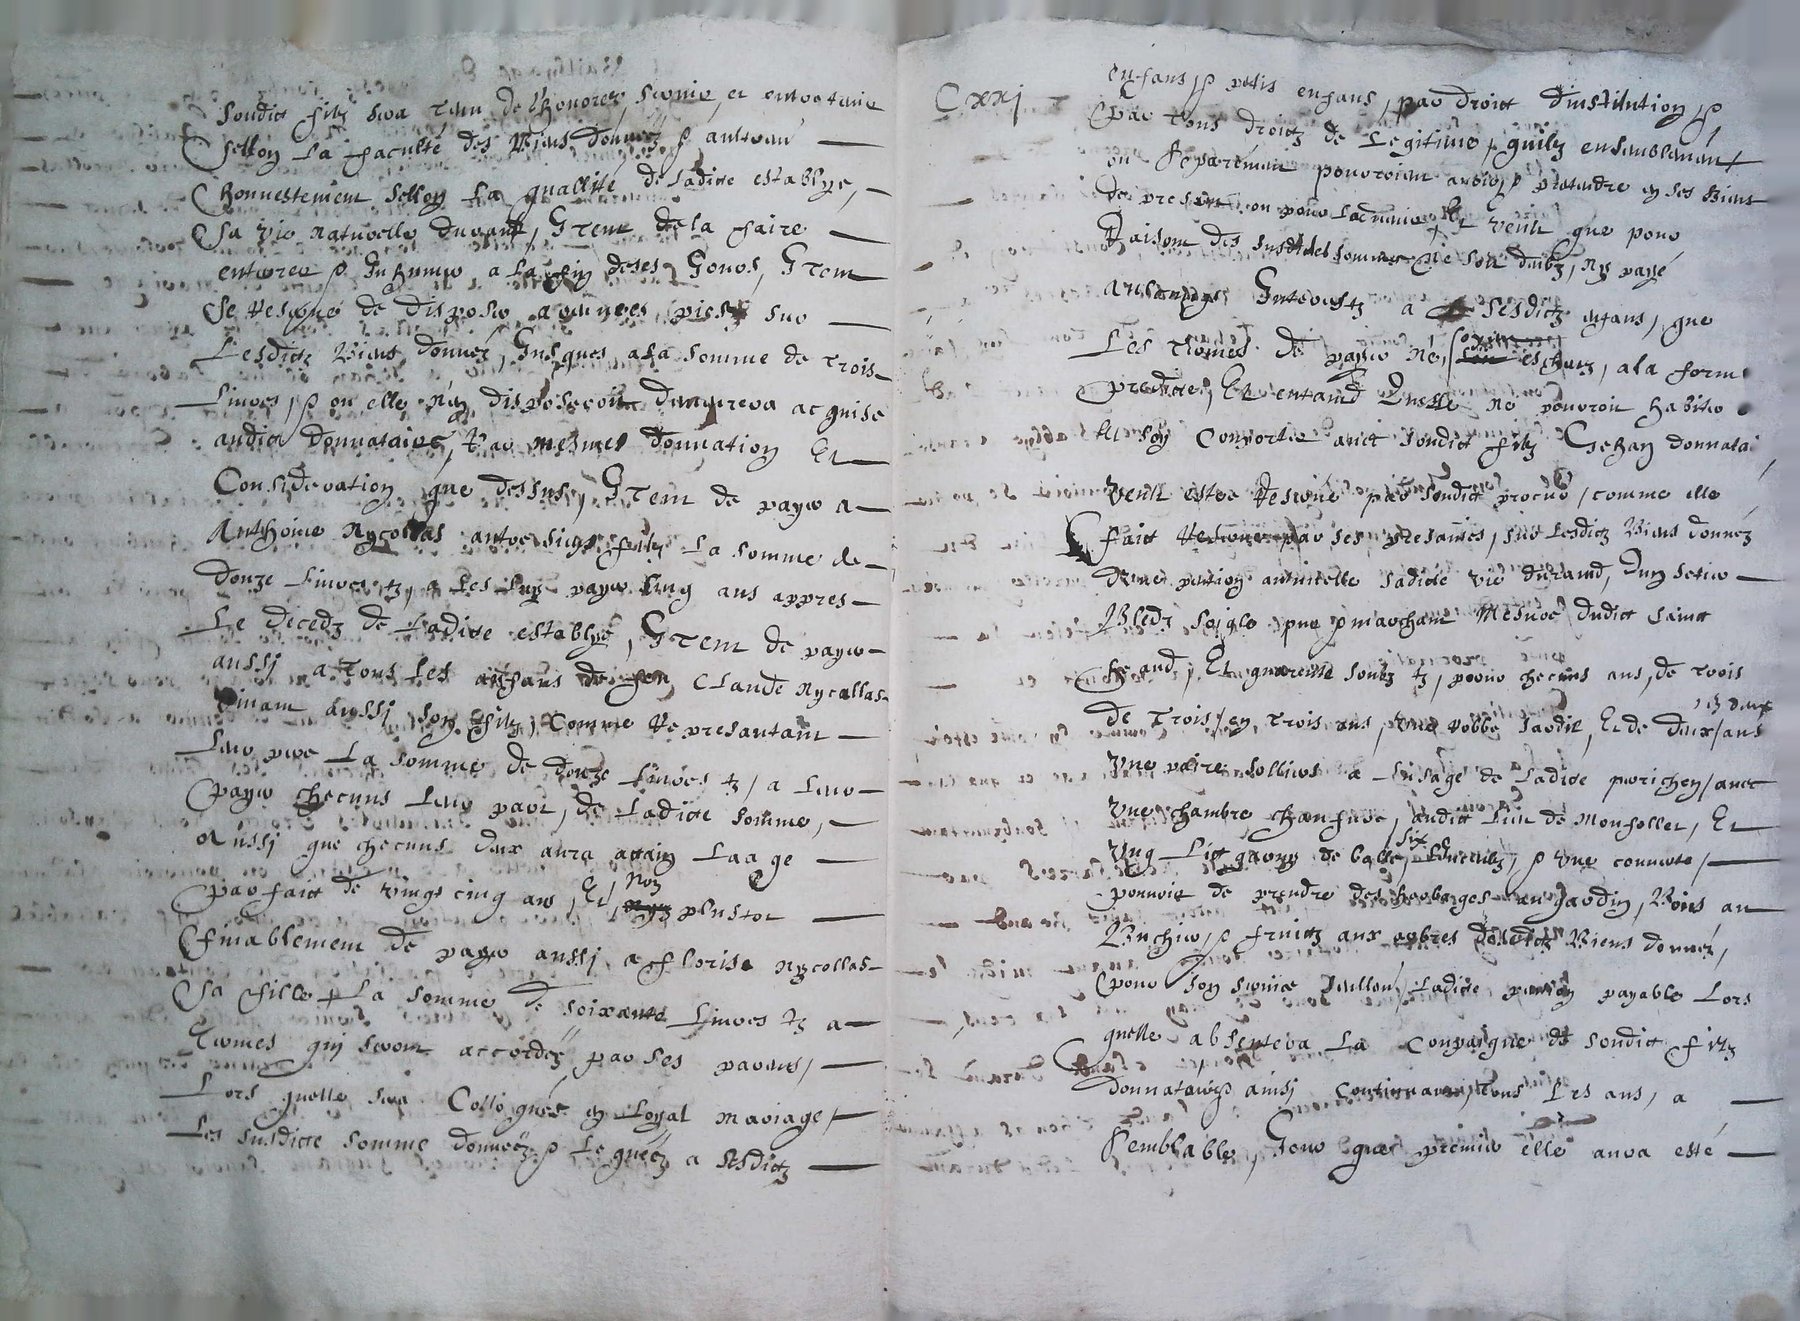 sondict filz sera tenu de honorer, servir, et entretenir
sellon la faculté des biens donnéz & aultrem̃
honnestement sellon la quallité de ladicte establye,
sa vie naturelle durant, Item de la faire
enterrer & inhumer a la fin de ses Jours, Item
se reserve de disposer a œuvres pies sur
lesdictz biens donnéz, Jusques a la somme de trois
livres, & ou elle n'en disposeroit demeurera acquise
audict donnataire, par mesmes donnation Et
consideration que dessus, Item de payer a
Anthoine Nycollas autre sien filz la somme de
douze livres tz, & les luy payer ung ans appres
le decedz de ladicte establye, Item de payer
aussi a tous les enfans de feu Claude Nycollas
vivant aussi son filz, comme representant
leur pere la somme de douze livres tz, a leur
payer checuns leur part, de ladicte somme,
aussi que checuns deux aura attaint laage
parfaict de vingt cinq ans, Et, Non plustot
finablement de payer aussi a Florise Nycollas
sa fille la somme de soixante livres tz a
termes qui seront accordéz par ses parens,
lors quelle sera collocquée en loyal mariage,
les susdicte somme donnéez & leguéez a sesdictz
Cxxj
enfans, & petis enfans, par droict dinstitution, &
par tous droictz de legitime, quilz ensamblemant
ou separémant pouroient avoir & pretandre en ses biens
de present ou pour ladvenir, Et veult que pour
Raison des susdictes sommes ne soit deubz, ny payé
aulcungs Interestz a sesdictz enfans, que
les termes de payer ne soyent escheuz, a la forme
predicte, Et entand quelle ne pouroit habiter
et soy comporter avec sondict filz Jehan donnatai
veult estre reservé par sondict procur, comme elle
faict reserve par ses presantes, sur lesdictz biens donnéz
dune pention annuelle sadicte vie durand, dun setier
bledz soigle pur & marchant mesure dudict sainct
Et quarente soubz tz, pour checuns ans, de trois
de trois, en trois ans, une robbe sardil, Et de deux, ans
une paire solliers a lusage de ladicte avec
une chambre chaufure, audict lieu de Monfollet, Et
ung lict garny de balle, six linceulz, & une couverte,
pouvoir de prendre des herbages au Jardin, bois au
buchier, & fruictz aux arbres desdictz biens donnéz,
pour son service ladicte pantion payable lors
quelle absentera la compaignie de sondict filz
donnataire & ainsi continuant, tous les ans, a
semblable, Jour que premier elle aura esté